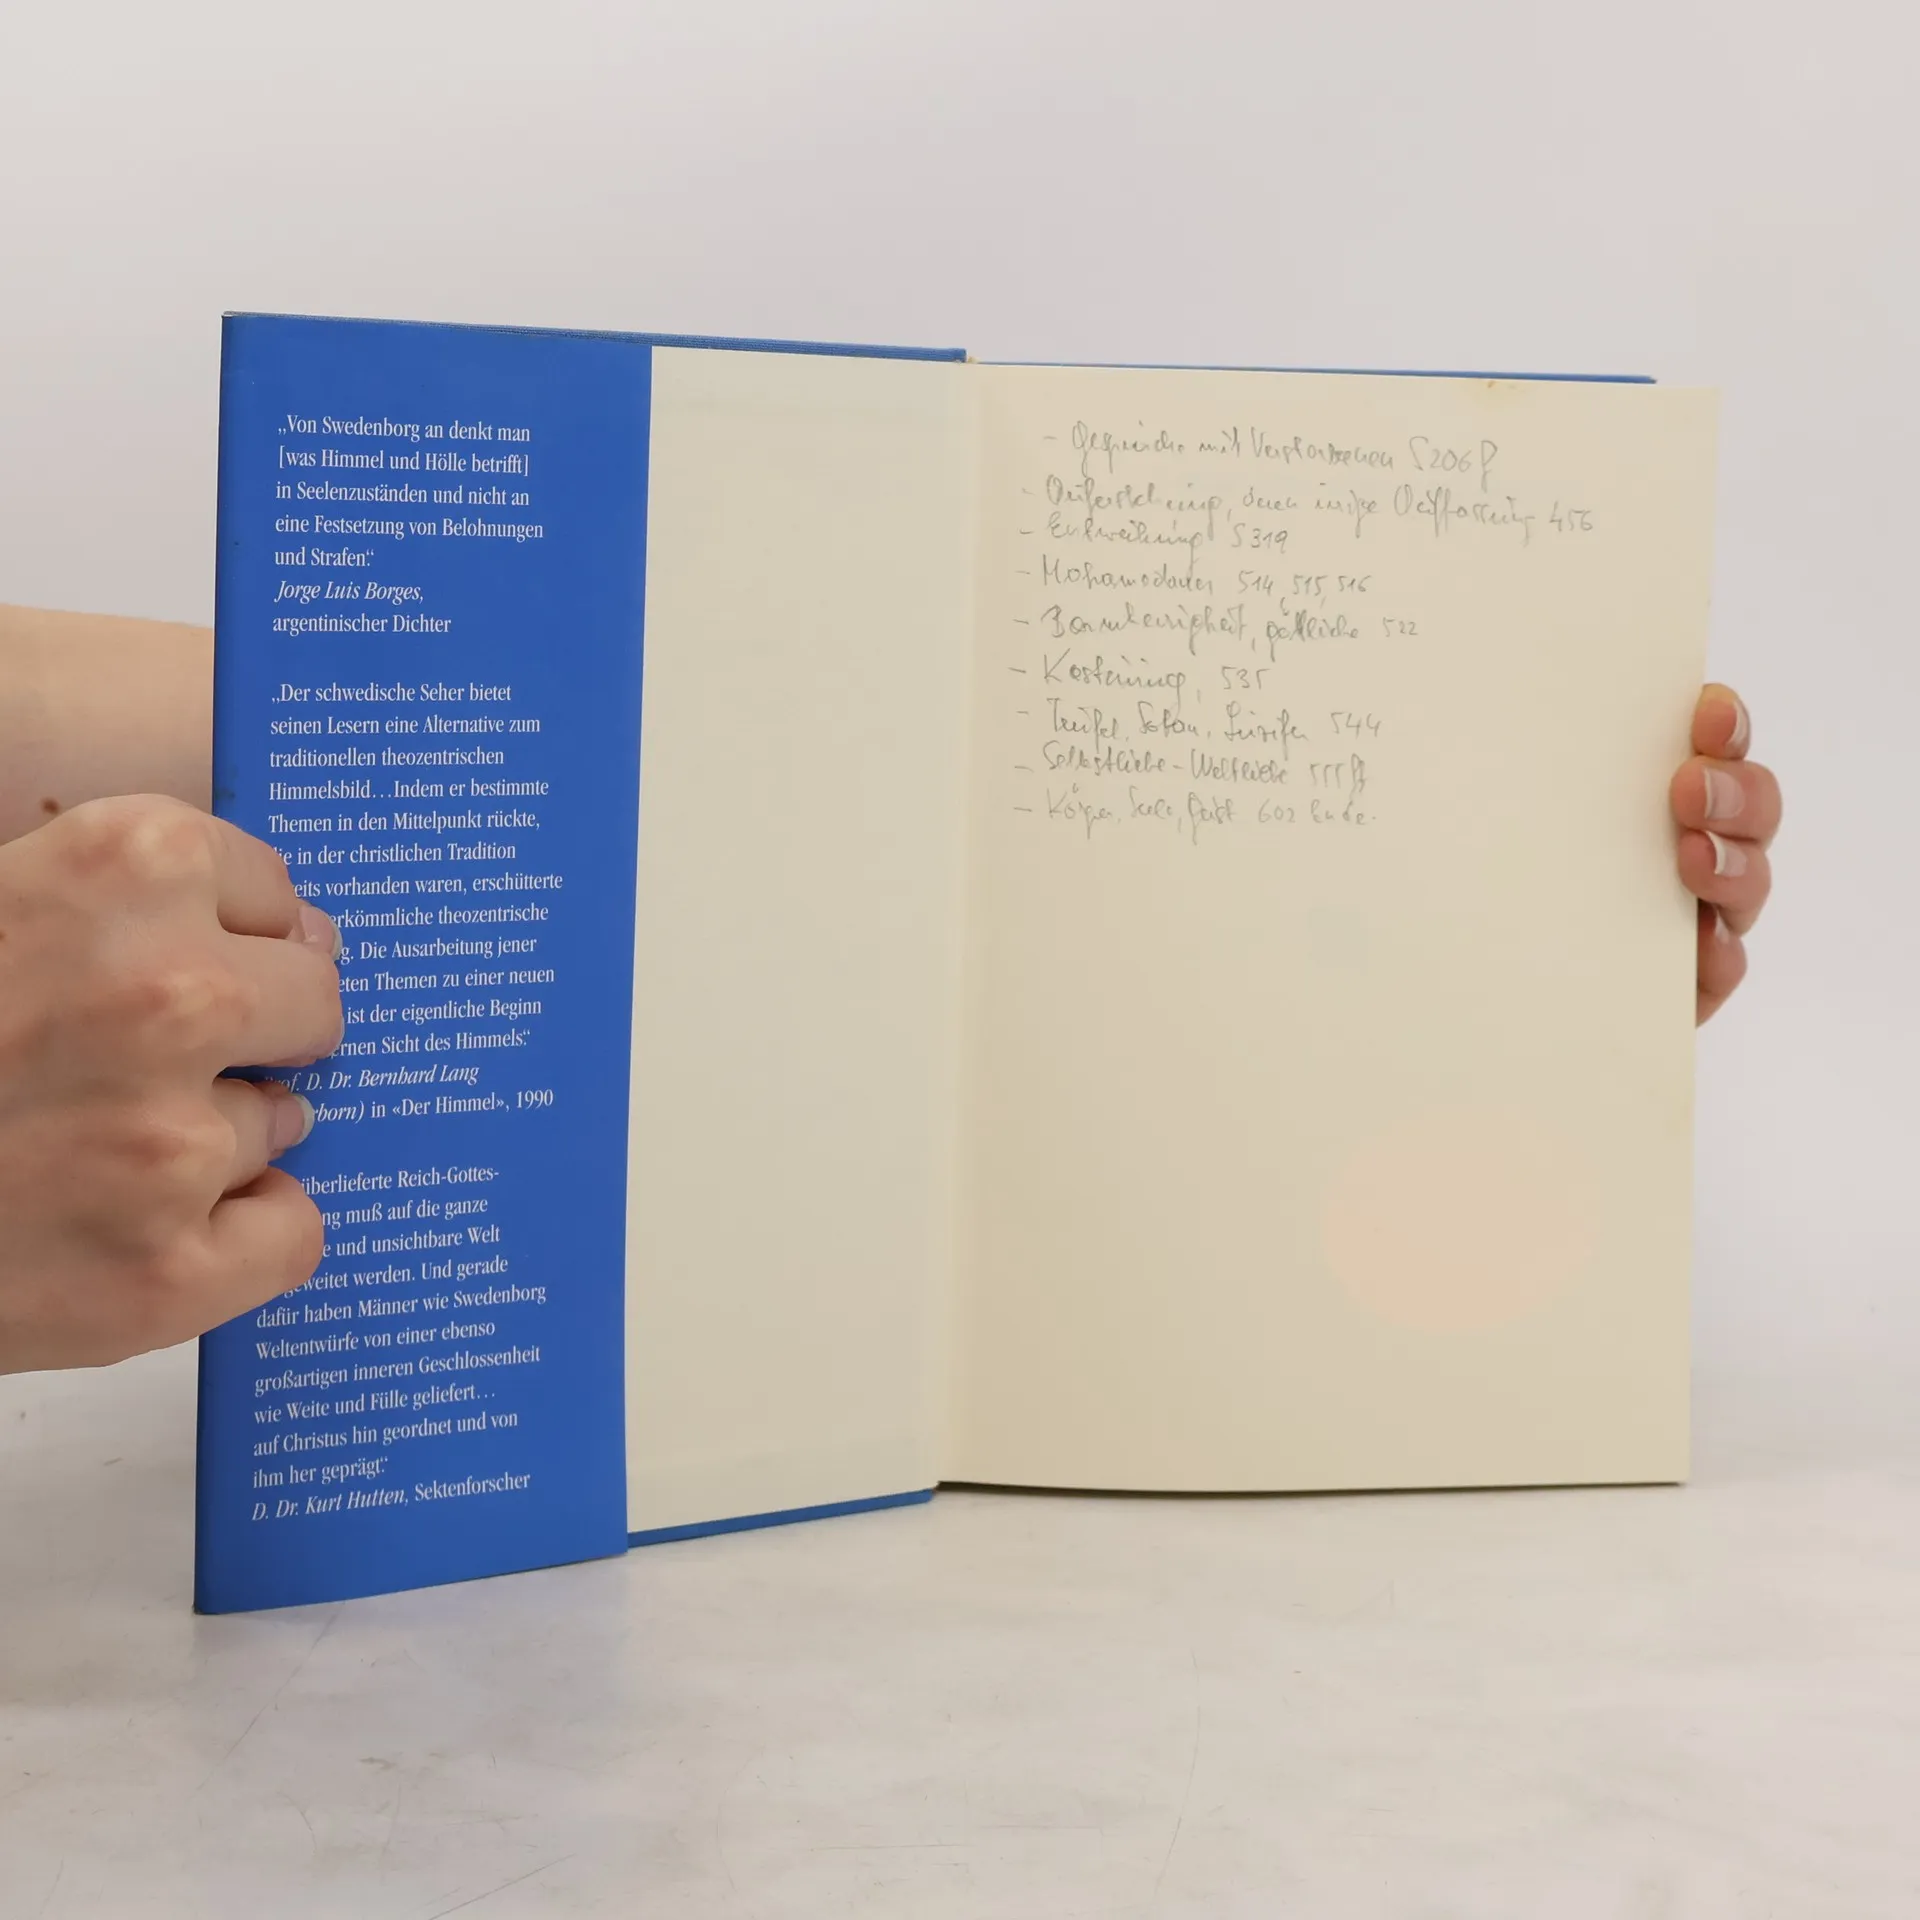 „Von Swedenborg an denkt man
[was Himmel und Hölle betrifft]
in Seelenzuständen und nicht an
eine Festsetzung von Belohnungen
und Strafen.“
Jorge Luis Borges,
argentinischer Dichter
„Der schwedische Seher bietet
seinen Lesern eine Alternative zum
traditionellen theozentrischen
Himmelsbild...Indem er bestimmte
Themen in den Mittelpunkt rückte,
in der christlichen Tradition
vorhanden waren, erschütterte
theozentrische
Die Ausarbeitung jener
Themen zu einer neuen
ist der eigentliche Beginn
Sicht des Himmels.“
D. Dr. Bernhard Lang
in «Der Himmel», 1990
überlieferte Reich-Gottes-
muß auf die ganze
und unsichtbare Welt
werden. Und gerade
dafür haben Männer wie Swedenborg
Weltentwürfe von einer ebenso
großartigen inneren Geschlossenheit
wie Weite und Fülle geliefert...
auf Christus hin geordnet und von
ihm her geprägt.“
D. Dr. Kurt Hutten, Sektenforscher
- Gespräche mit Verstorbenen S206f
- Auferstehung, deren irrige Auffassung 456
- Entweihung S319
- Mohamedaner 514, 515, 516
- Barmherzigkeit, göttliche 522
- 535
- Teufel, Satan, Luzifer 544
- Selbstliebe-Weltliebe 555ff
- Körper, Seele, Geist 602 Ende.